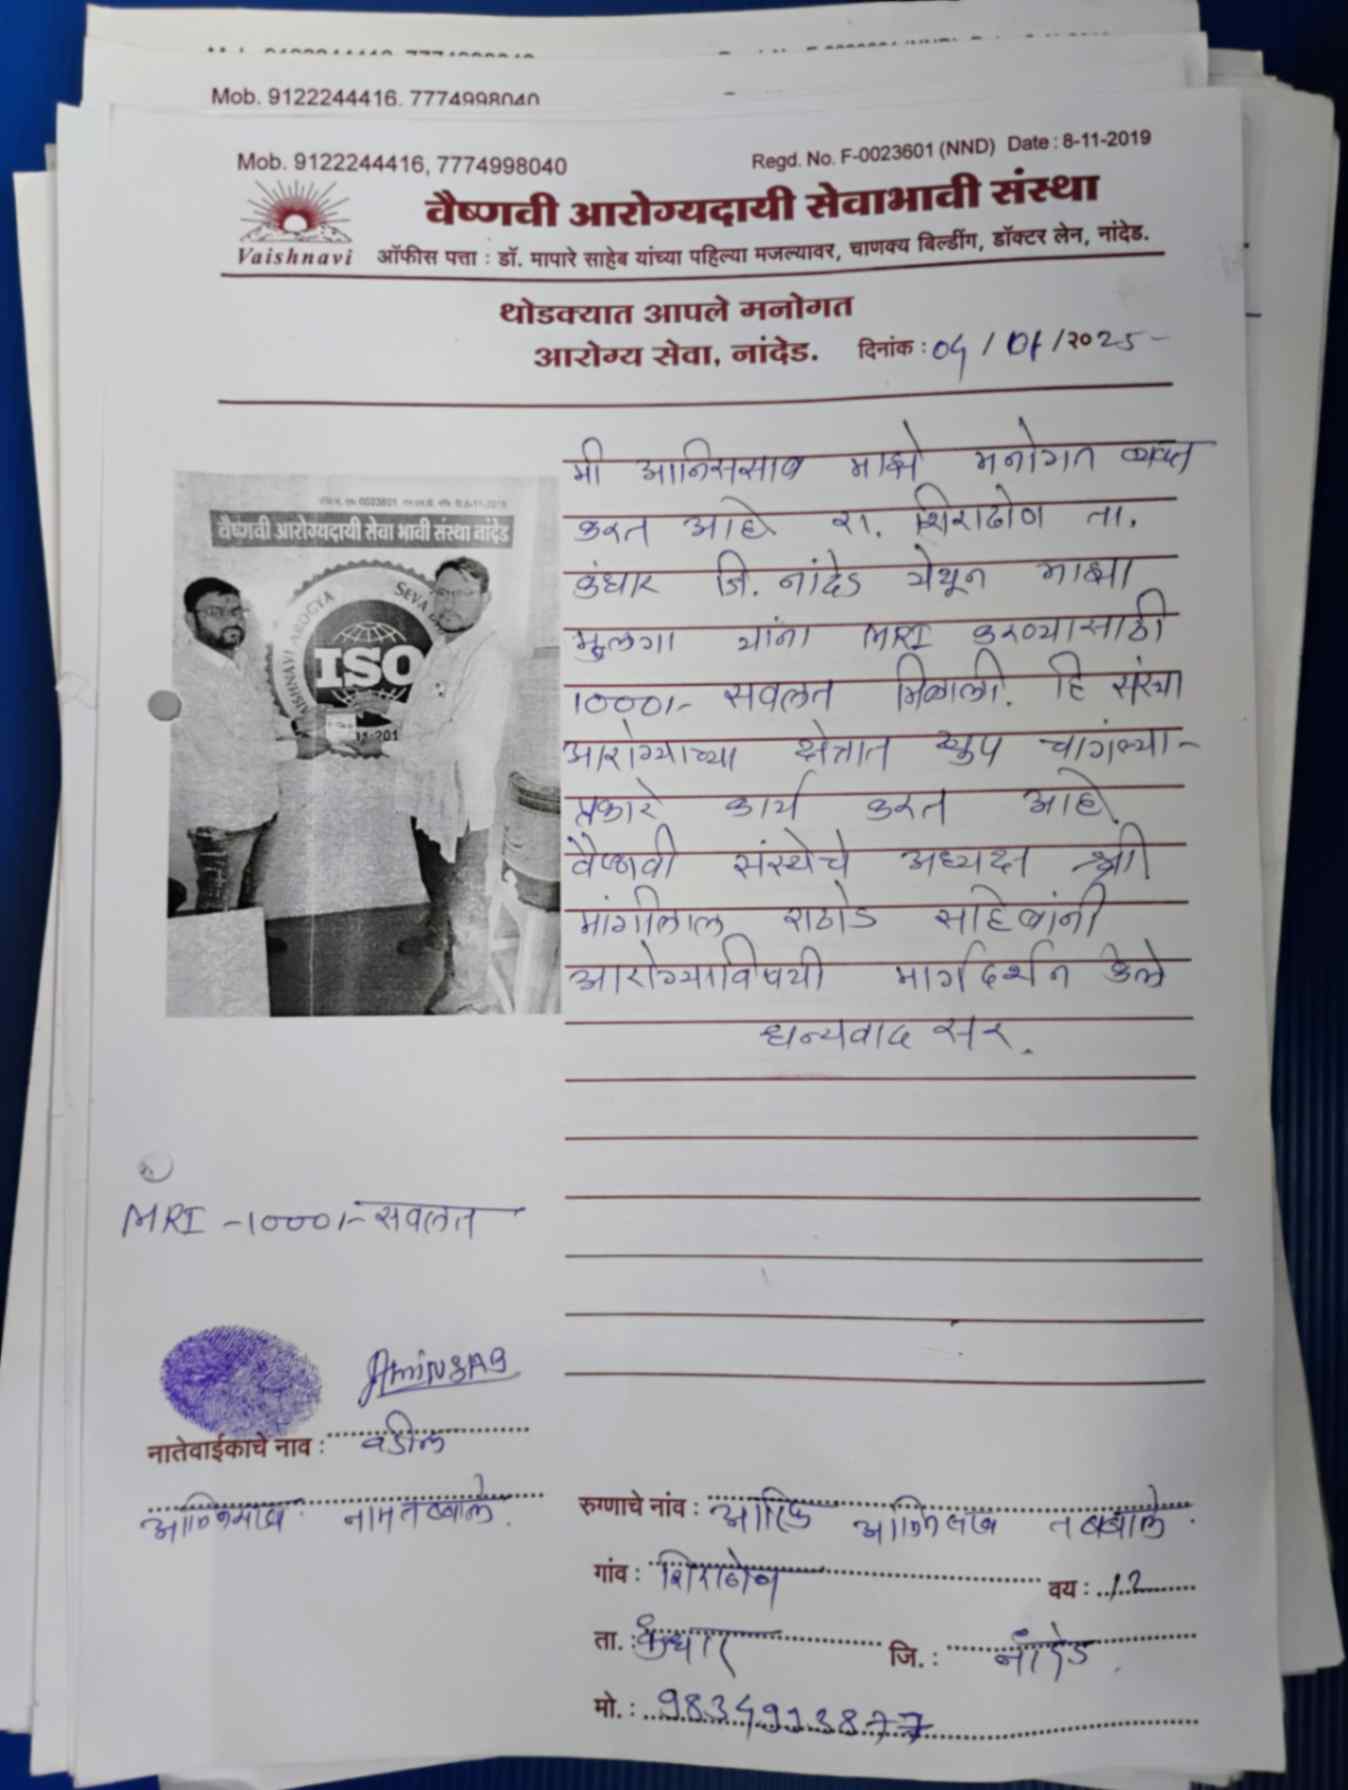 Mob. 9122244416, 7774998040
Mob. 9122244416, 7774998040
Regd. No. F-0023601 (NND) Date : 8-11-2019
वैष्णवी आरोग्यदायी सेवाभावी संस्था
Vaishnavi
ऑफीस पत्ता : डॉ. मापारे साहेब यांच्या पहिल्या मजल्यावर, चाणक्य बिल्डींग, डॉक्टर लेन, नांदेड.
थोडक्यात आपले मनोगत
आरोग्य सेवा, नांदेड. दिनांक : 04 / 01 /२०25
मी आनिससाब माझे मनोगत व्यक्त
करत आहे रा. शिराढोण ता.
कंधार जि. नांदेड येथून माझा
मुलगा यांना MRI करण्यासाठी
1000/- सवलत मिळाली. हि संस्था
आरोग्याच्या क्षेत्रात खुप चांगल्या-
प्रकारे कार्य करत आहे.
वैष्णवी संस्थेचे अध्यक्ष श्री
मांगीलाल राठोड साहेबांनी
आरोग्याविषयी मार्गदर्शन केले
धन्यवाद सर.
वैष्णवी आरोग्यदायी सेवा भावी संस्था नांदेड
VAISHNAVI AROGYA SEVA
ISO
MRI -1000/- सवलत
AminSAB
नातेवाईकाचे नाव : वडील
रुग्णाचे नांव :
गांव : शिराढोण वय : 12
ता. : कंधार जि. : नांदेड.
मो. : 9834913877